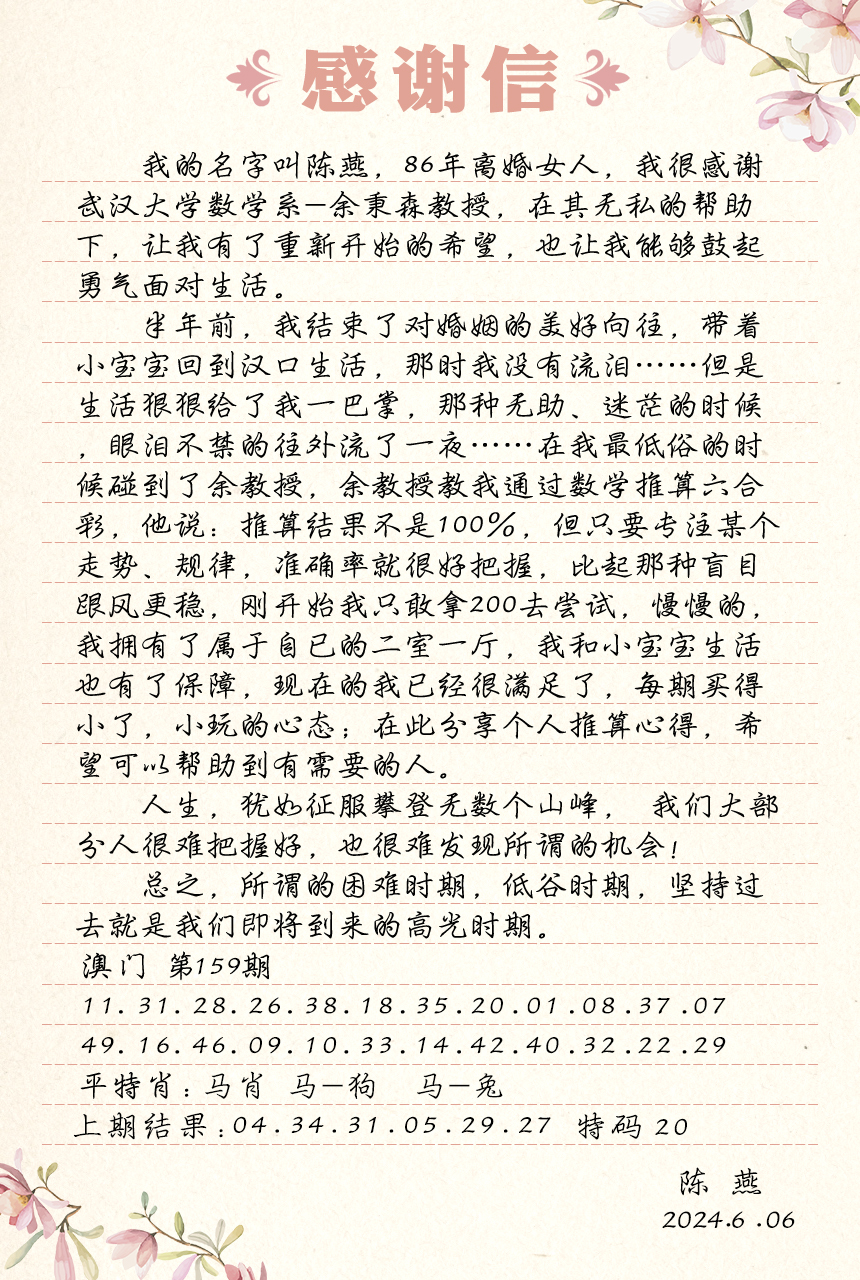 感谢信
我的名字叫陈燕，86年离婚女人，我很感谢
武汉大学数学系—余秉森教授，在其无私的帮助
下，让我有了重新开始的希望，也让我能够鼓起
勇气面对生活。
半年前，我结束了对婚姻的美好向往，带着
小宝宝回到汉口生活，那时我没有流泪……但是
生活狠狠给了我一巴掌，那种无助、迷茫的时候
，眼泪不禁的往外流了一夜……在我最低俗的时
候碰到了余教授，余教授教我通过数学推算六合
彩，他说：推算结果不是100%，但只要专注某个
走势、规律，准确率就很好把握，比起那种盲目
跟风更稳，刚开始我只敢拿200去尝试，慢慢的，
我拥有了属于自已的二室一厅，我和小宝宝生活
也有了保障，现在的我已经很满足了，每期买得
小了，小玩的心态；在此分享个人推算心得，希
望可以帮助到有需要的人。
人生，犹如征服攀登无数个山峰， 我们大部
分人很难把握好，也很难发现所谓的机会！
总之，所谓的困难时期，低谷时期，坚持过
去就是我们即将到来的高光时期。
澳门 第159期
11.31.28.26.38.18.35.20.01.08.37.07
49.16.46.09.10.33.14.42.40.32.22.29
平特肖：马肖 马—狗 马—兔
上期结果：04.34.31.05.29.27 特码 20
陈 燕
2024.6 .06